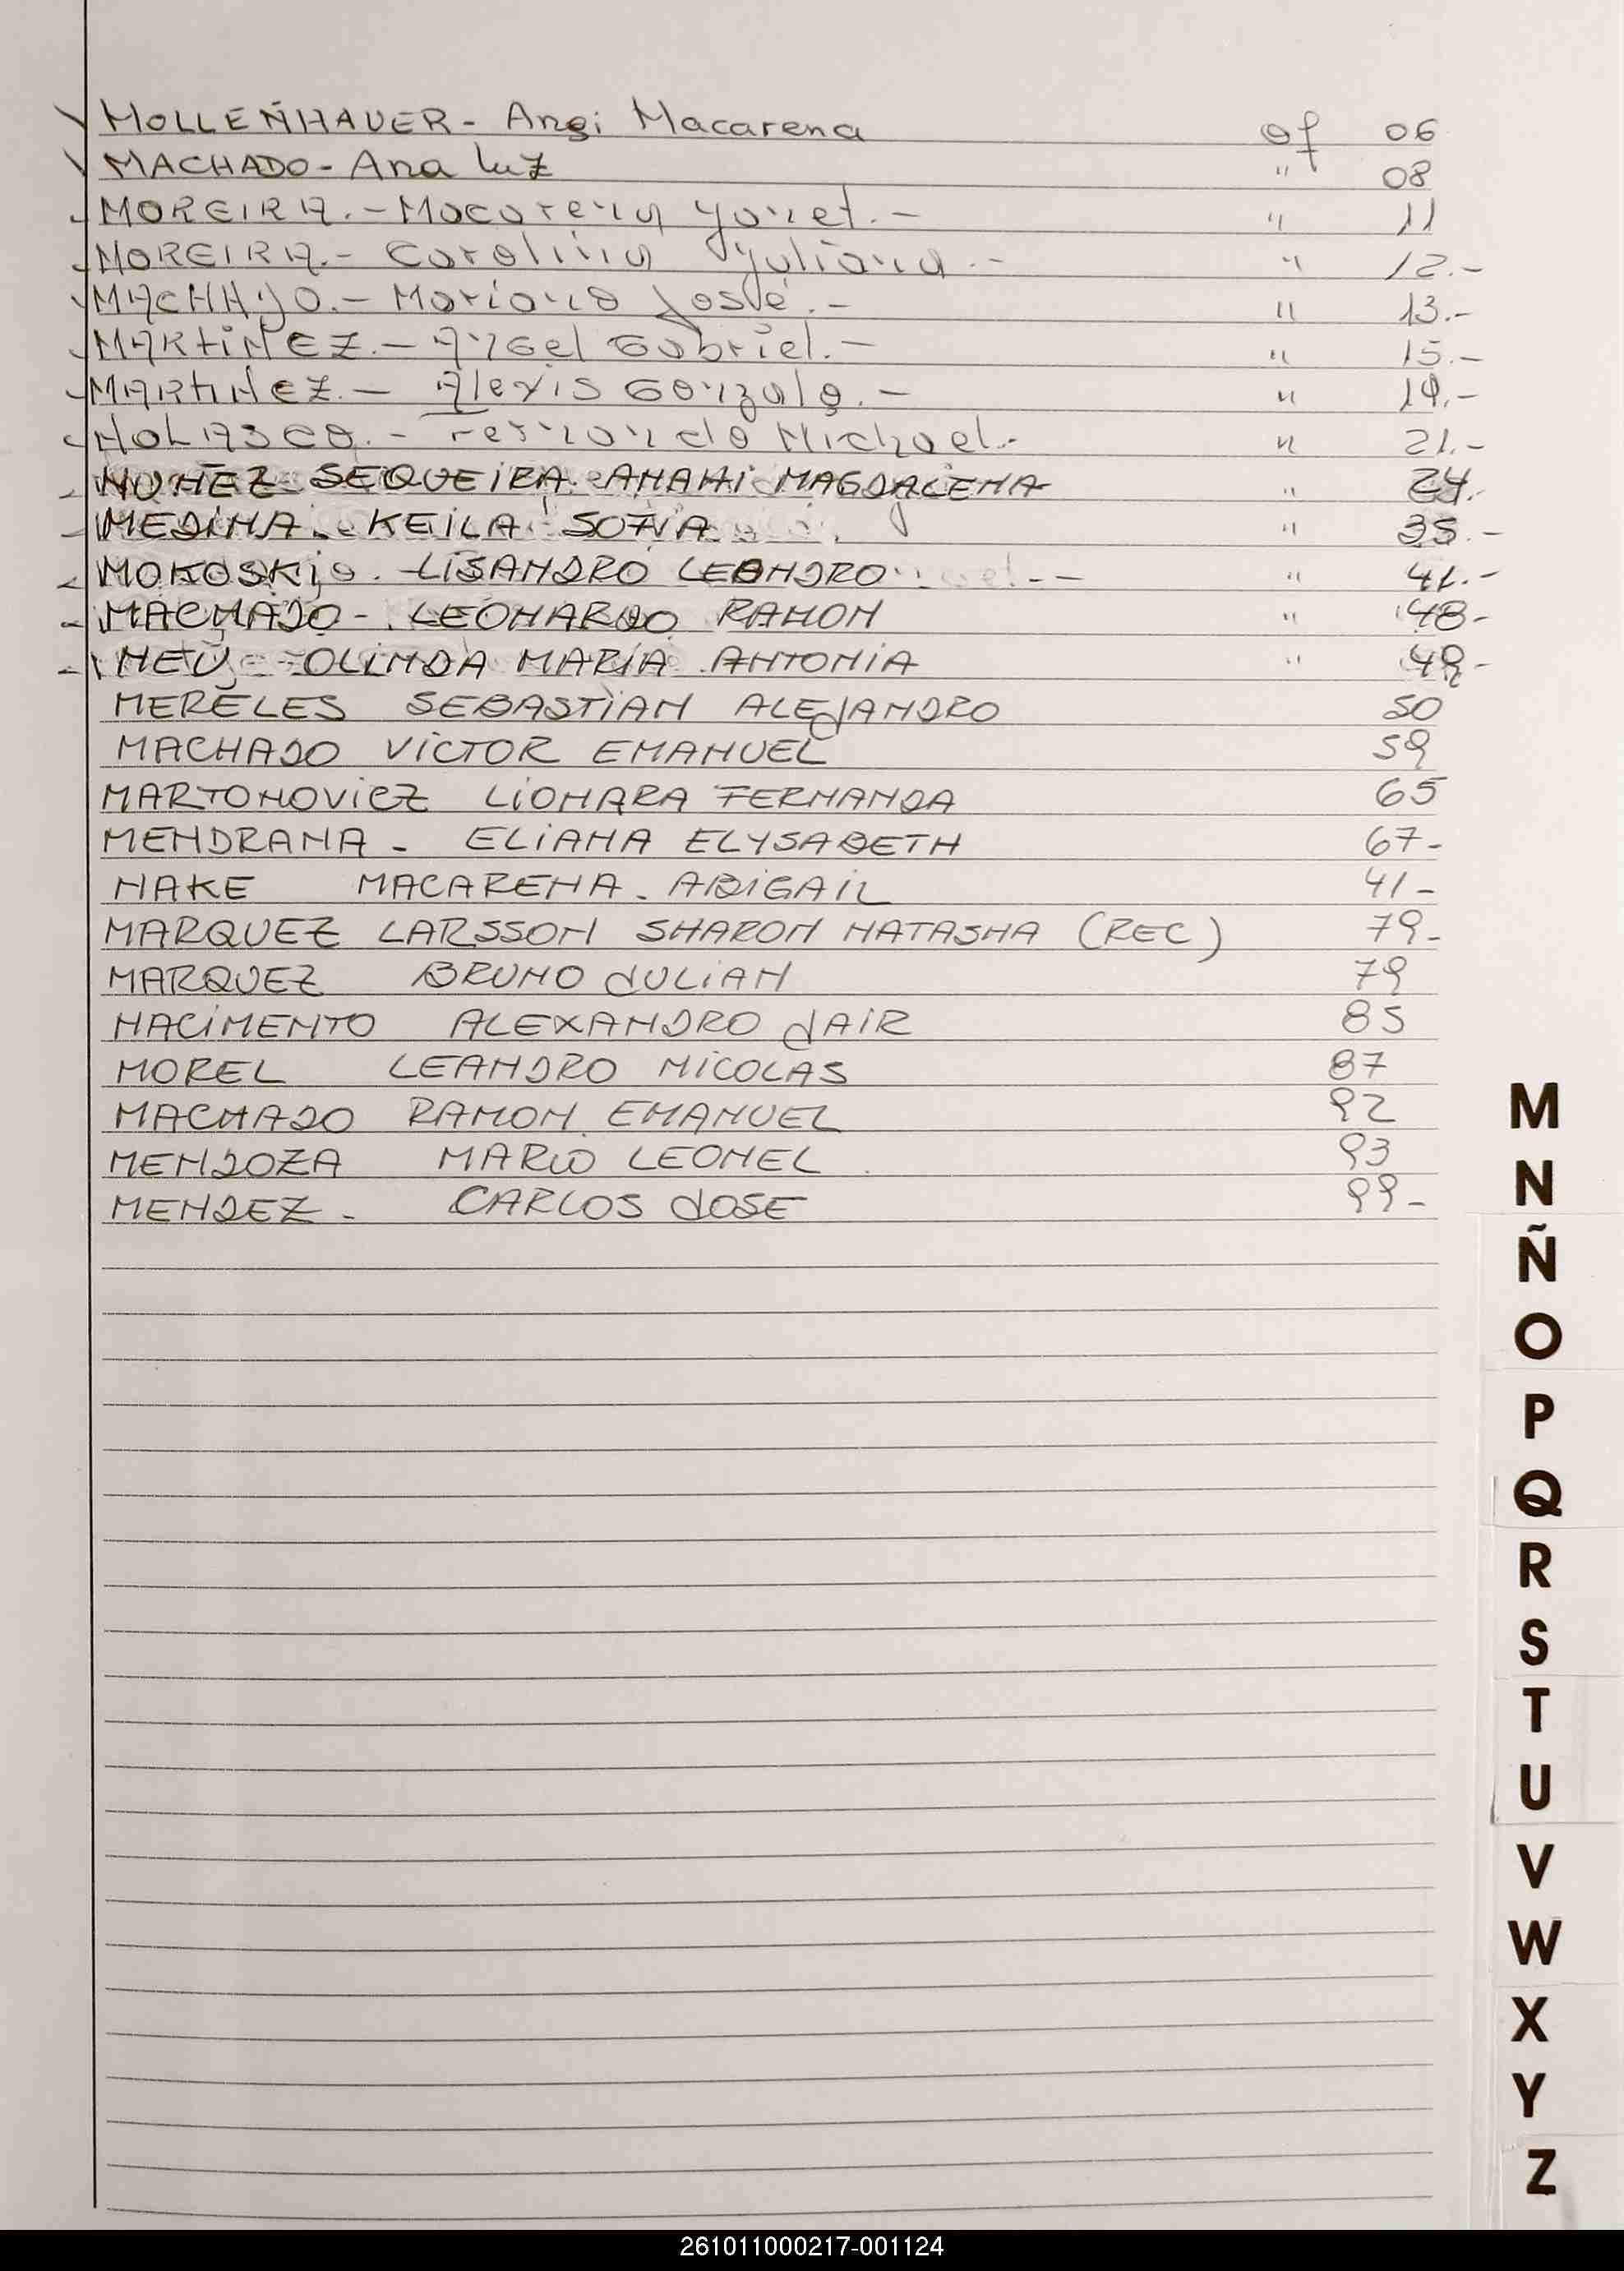 MOLLENHAUER - Angi Macarena of 06
MACHADO - Ana Luz " 08
MOREIRA.- Macarena Yanet.- " 11
MOREIRA.- Carolina Yuliana.- " 12.-
MACHADO.- Mariano José.- " 13.-
MARTINEZ.- Angel Gabriel.- " 15.-
MARTINEZ.- Alexis Gonzalo.- " 19.-
Fernando Michael.- " 21.-
NUÑEZ SEQUEIRA ANAHI MAGDALENA " 24.
MEDINA KEILA SOFIA " 35.-
MOKOSKI LISANDRO LEANDRO " 41.-
MACHADO - LEONARDO RAMON " 48-
NEU OLINDA MARIA ANTONIA " 49-
MERELES SEBASTIAN ALEJANDRO 50
MACHADO VICTOR EMANUEL 59
MARTONOVICZ LIONARA FERNANDA 65
MENDRANA - ELIANA ELYSABETH 67-
NAKE MACARENA - ABIGAIL 41-
MARQUEZ LARSSON SHARON NATASHA (REC) 79-
MARQUEZ BRUNO JULIAN 79
NACIMENTO ALEXANDRO JAIR 85
MOREL LEANDRO NICOLAS 87
MACHADO RAMON EMANUEL 92
MENDOZA MARIO LEONEL 93
MENDEZ - CARLOS JOSE 99-
M
N
Ñ
O
P
Q
R
S
T
U
V
W
X
Y
Z
261011000217-001124